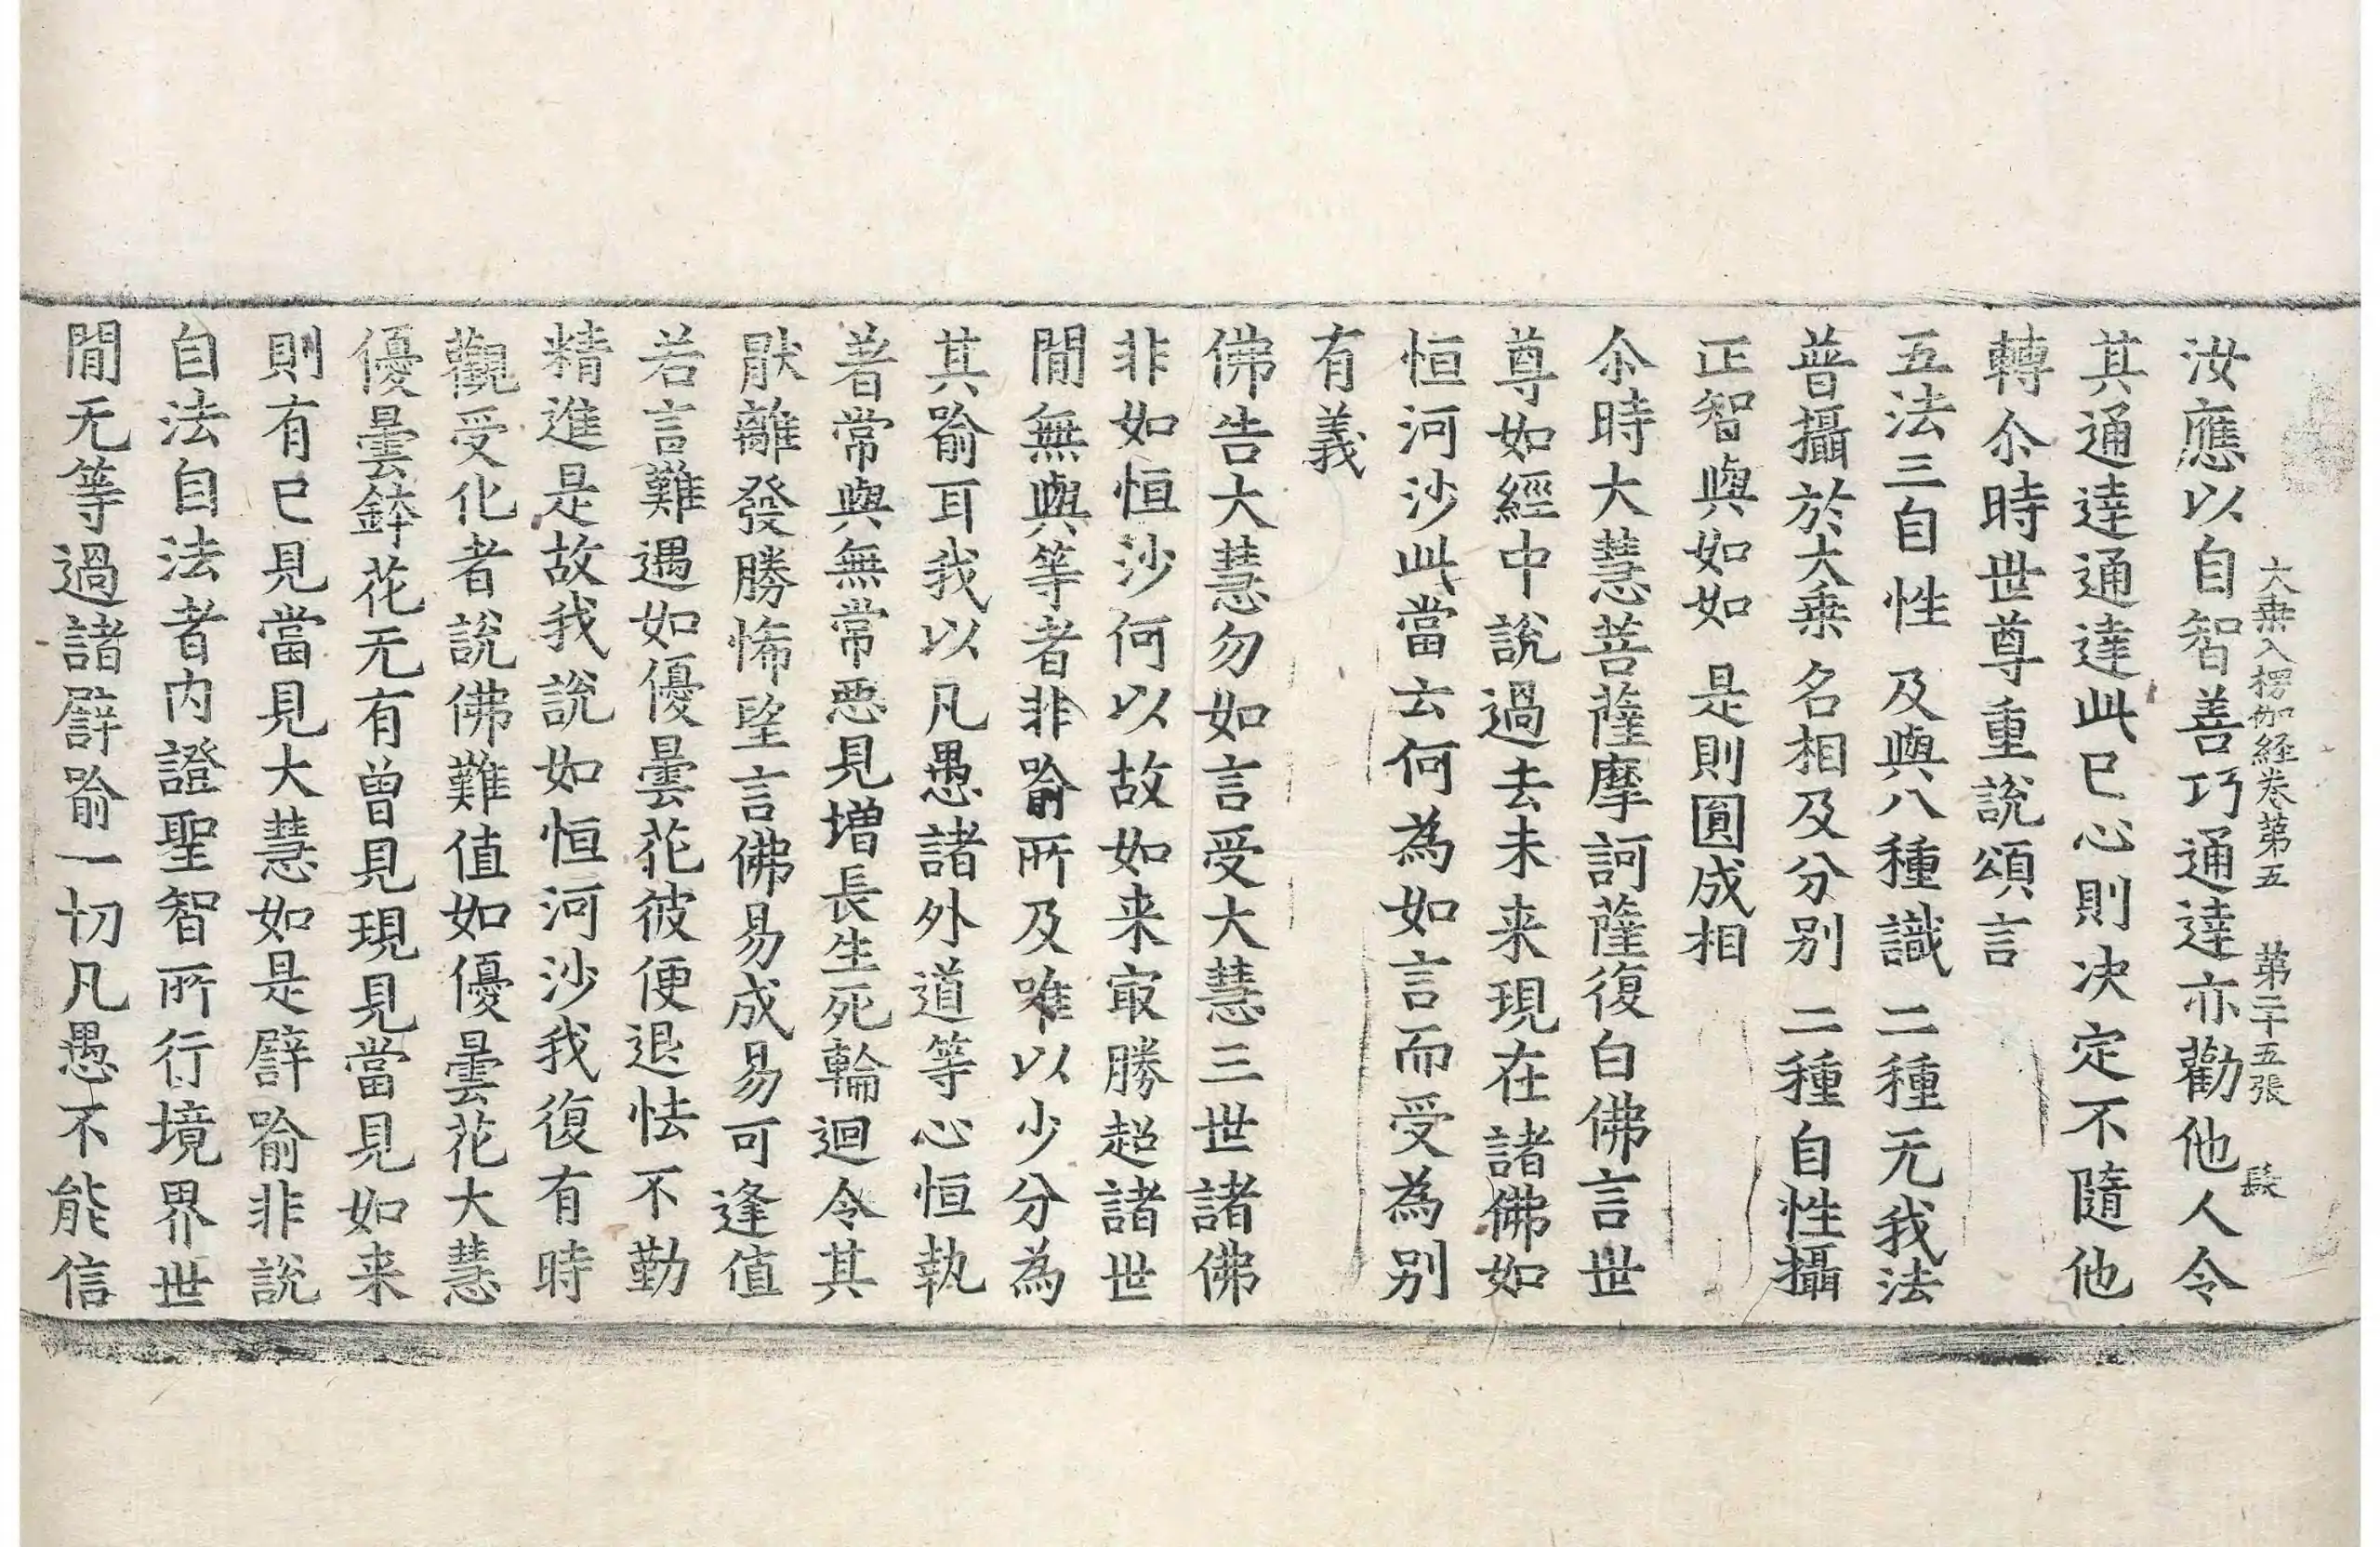 大乗入楞伽経卷第五　第二十五張　髮
汝應以自智善巧通達亦勸他人令
其通達通達此已心則决定不隨他
轉尒時世尊重說頌言
五法三自性　及與八種識　二種无我法
普攝於大乗　名相及分别　二種自性攝
正智與如如　是則圓成相
尒時大慧菩薩摩訶薩復白佛言世
尊如經中說過去未来現在諸佛如
恒河沙此當云何為如言而受為别
有義
佛告大慧勿如言受大慧三世諸佛
非如恒沙何以故如来㝡勝超諸世
間無與等者非喻所及唯以少分為
其喻耳我以凡愚諸外道等心恒執
著常與無常惡見增長生死輪迴令其
猒離發勝悕望言佛易成易可逢值
若言難遇如優曇花彼便退怯不勤
精進是故我說如恒河沙我復有時
觀受化者說佛難值如優曇花大慧
優曇鉢花无有曾見現見當見如来
則有已見當見大慧如是譬喻非說
自法自法者内證聖智所行境界世
間无等過諸譬喻一切凡愚不能信